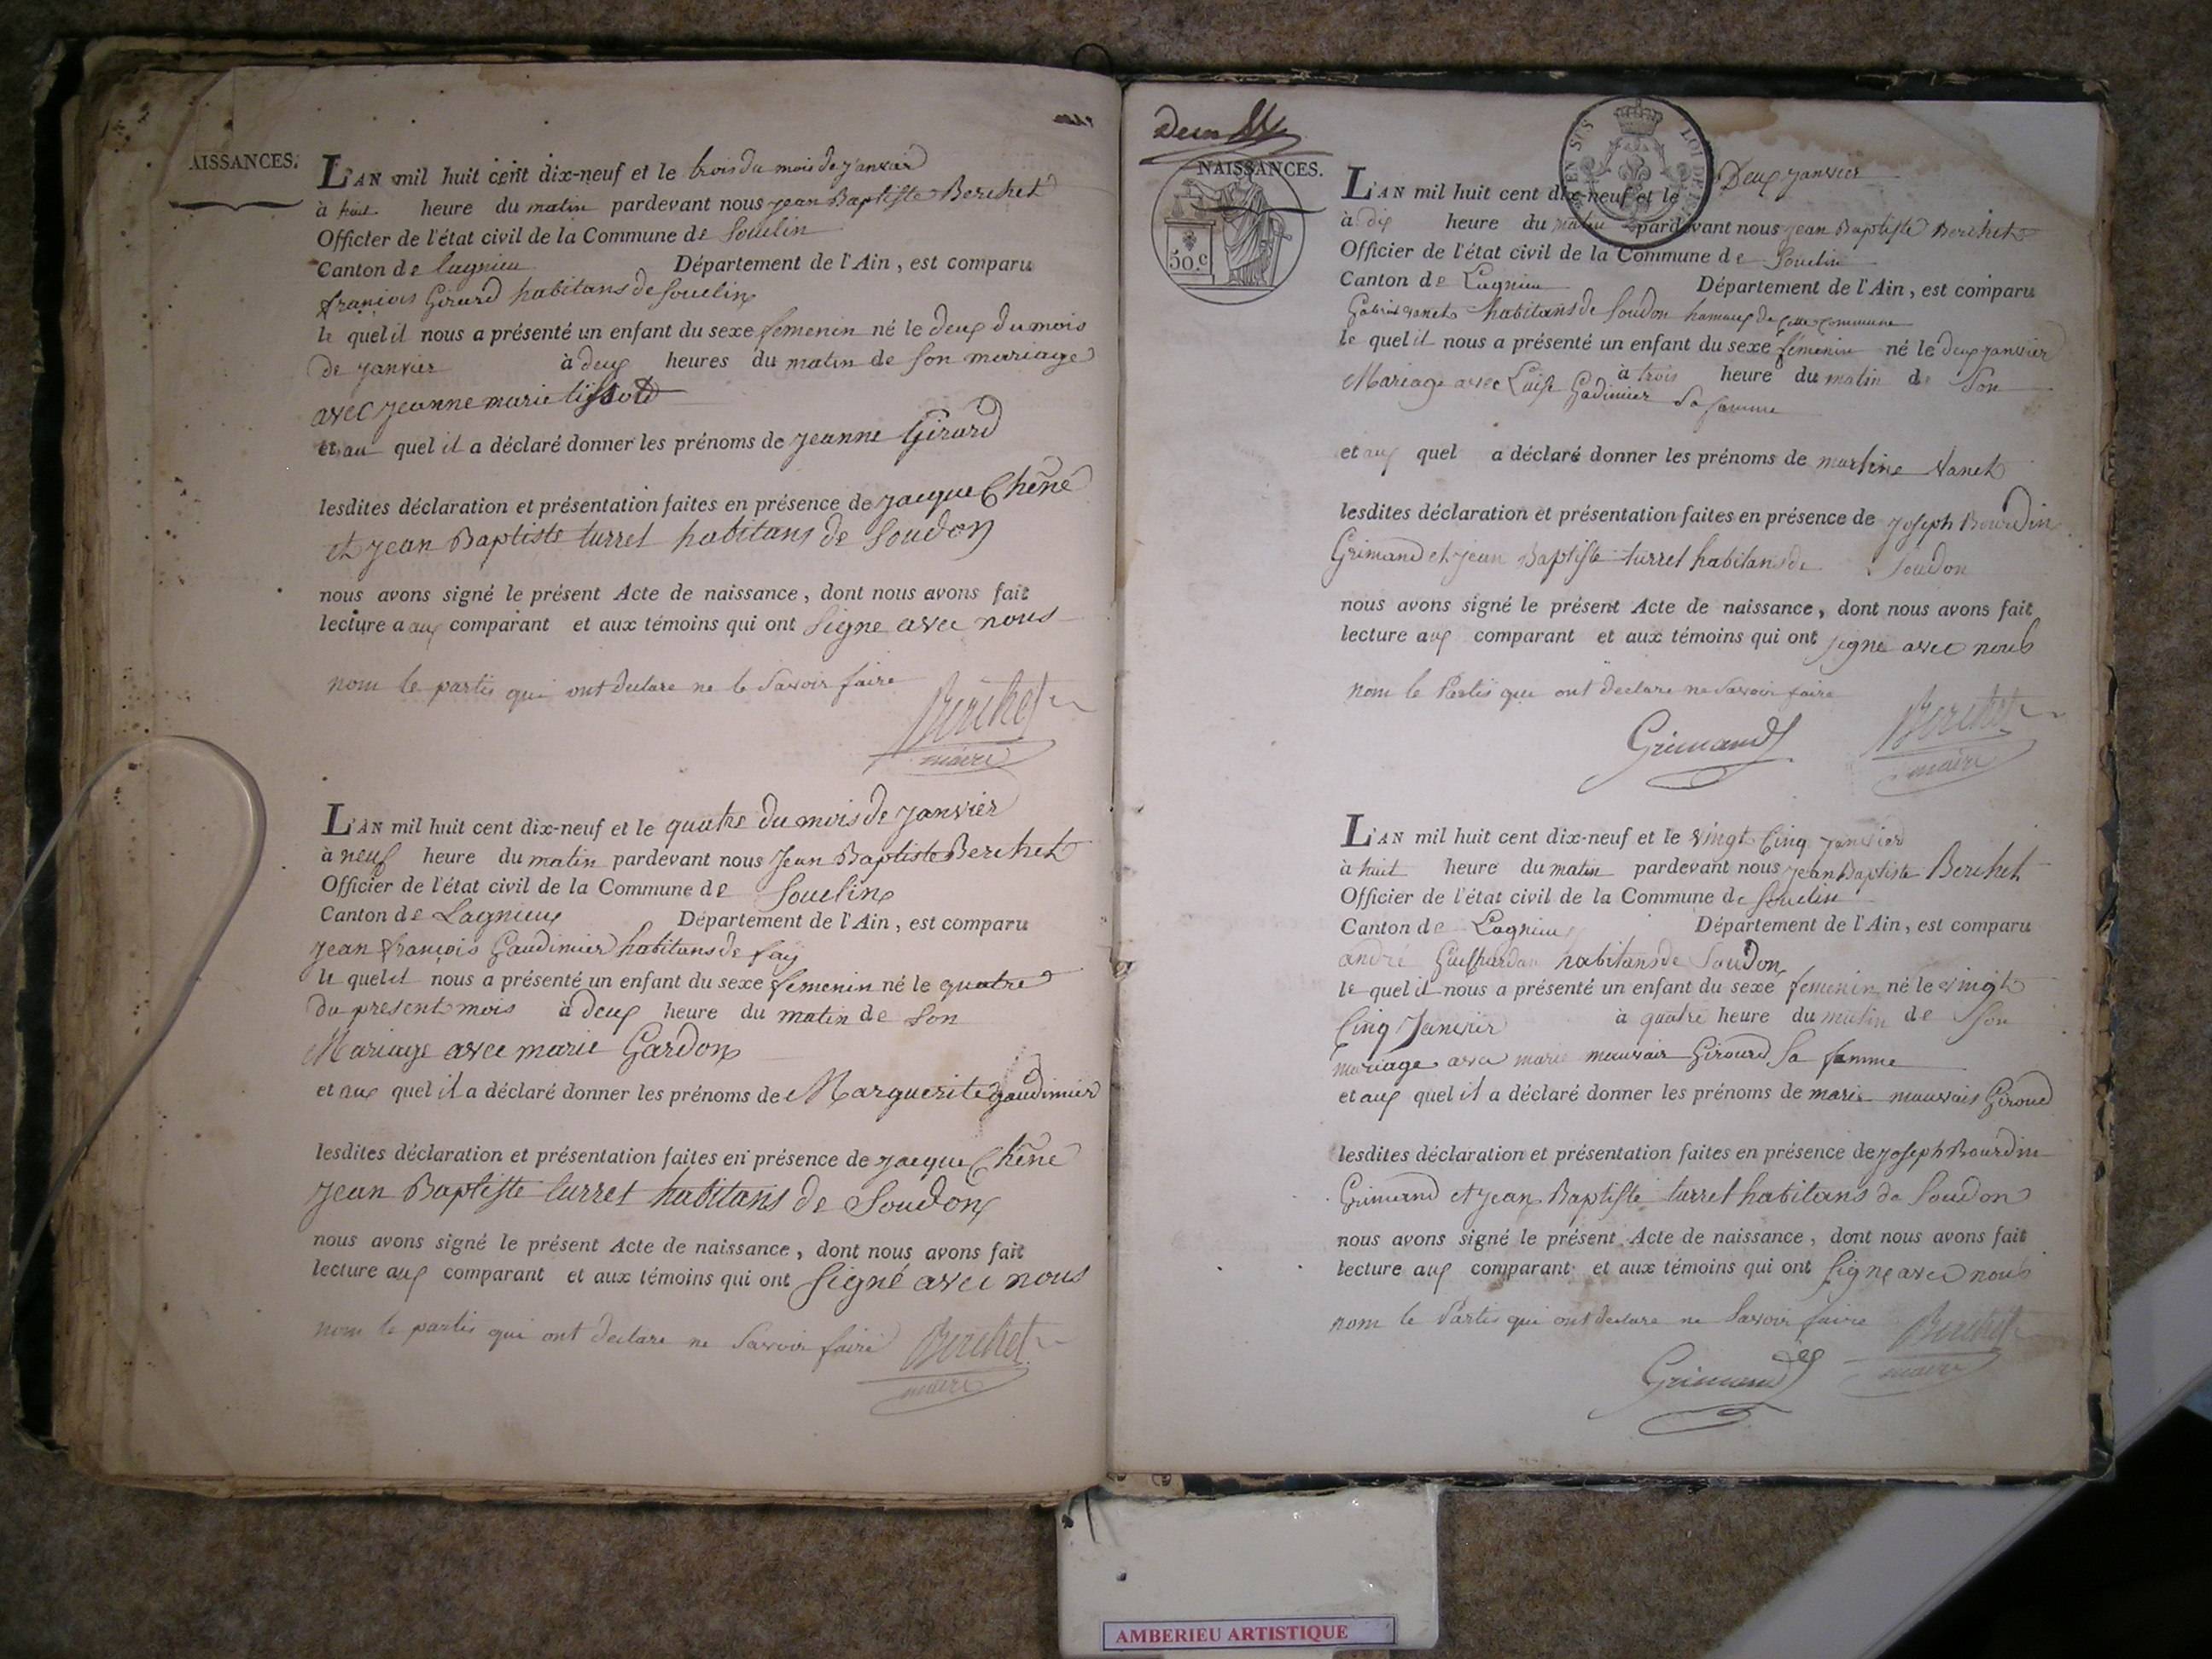 AISSANCES.
L'AN mil huit cent dix-neuf et le trois du mois de janvier
à huit heure du matin pardevant nous jean Baptiste Berchet
Officier de l'état civil de la Commune de Souclin
Canton de lagnieu Département de l'Ain, est comparu
françois Girard habitans de Souclin
le quel il nous a présenté un enfant du sexe femenin né le deux du mois
de janvier à deux heures du matin de son mariage
avec jeanne marie tissot
et au quel il a déclaré donner les prénoms de jeanne Girard
lesdites déclaration et présentation faites en présence de jacque Chêne
et jean Baptiste turrel habitans de Soudon
nous avons signé le présent Acte de naissance, dont nous avons fait
lecture a aux comparant et aux témoins qui ont Signe avec nous
nom le partis qui ont declare ne le Savoir faire
Berchet
maire
L'AN mil huit cent dix-neuf et le quatre du mois de janvier
à neuf heure du matin pardevant nous Jean Baptiste Berchet
Officier de l'état civil de la Commune de Souclin
Canton de Lagnieux Département de l'Ain, est comparu
jean françois Gaudimier habitans de fay
le quel il nous a présenté un enfant du sexe femenin né le quatre
du present mois à deux heure du matin de Son
Mariage avec marie Gardon
et aux quel il a déclaré donner les prénoms de Marguerite gaudimier
lesdites déclaration et présentation faites en présence de jacque Chêne
jean Baptiste turrel habitans de Soudon
nous avons signé le présent Acte de naissance, dont nous avons fait
lecture aux comparant et aux témoins qui ont Signé avec nous
nom le partis qui ont declare ne Savoir faire
Berchet
maire
deux
NAISSANCES.
50.c
L'AN mil huit cent dix-neuf et le Deux janvier
à dix heure du matin pardevant nous jean Baptiste Berchet
Officier de l'état civil de la Commune de Souclin
Canton de Lagnieu Département de l'Ain, est comparu
habitans de Soudon hamaux de Cette Commune
le quel il nous a présenté un enfant du sexe femenin né le deux janvier
à trois heure du matin de Son
Mariage avec Gadimier Sa famme
et aux quel a déclaré donner les prénoms de martine
lesdites déclaration et présentation faites en présence de joseph Bourdin
Grimand et jean Baptiste turrel habitans de Soudon
nous avons signé le présent Acte de naissance, dont nous avons fait
lecture aux comparant et aux témoins qui ont signe avec nous
nom le Partis qui ont declare ne Savoir faire
Grimand
Berchet
maire
L'AN mil huit cent dix-neuf et le vingt Cinq janvier
à huit heure du matin pardevant nous jean Baptiste Berchet
Officier de l'état civil de la Commune de Souclin
Canton de Lagnieux Département de l'Ain, est comparu
andré habitans de Soudon
le quel il nous a présenté un enfant du sexe femenin né le vingt
Cinq Janvier à quatre heure du matin de Son
mariage avec marie mauvais Giroud Sa famme
et aux quel il a déclaré donner les prénoms de marie mauvais Giroud
lesdites déclaration et présentation faites en présence de joseph Bourdin
Grimand et jean Baptiste turrel habitans de Soudon
nous avons signé le présent Acte de naissance, dont nous avons fait
lecture aux comparant et aux témoins qui ont Signe avec nous
nom le Partis qui ont declare ne Savoir faire
Berchet
maire
Grimand
AMBERIEU ARTISTIQUE